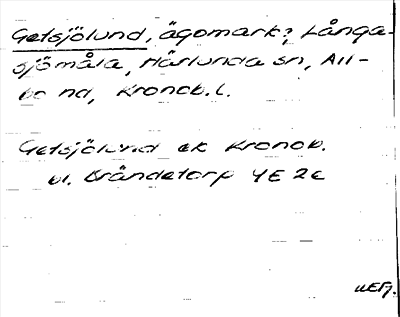 Getsjölund, ägomark?, Långa-
sjömåla, Härlunda sn, All-
bo hd, Kronob. l.
Getsjölund ek Kronob.
bl. Brändetorp 4E 2e